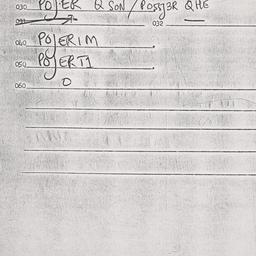 030 POJER & SON / POSSJER QHE
032
040 POJERIM
050 POJERTI
060 O